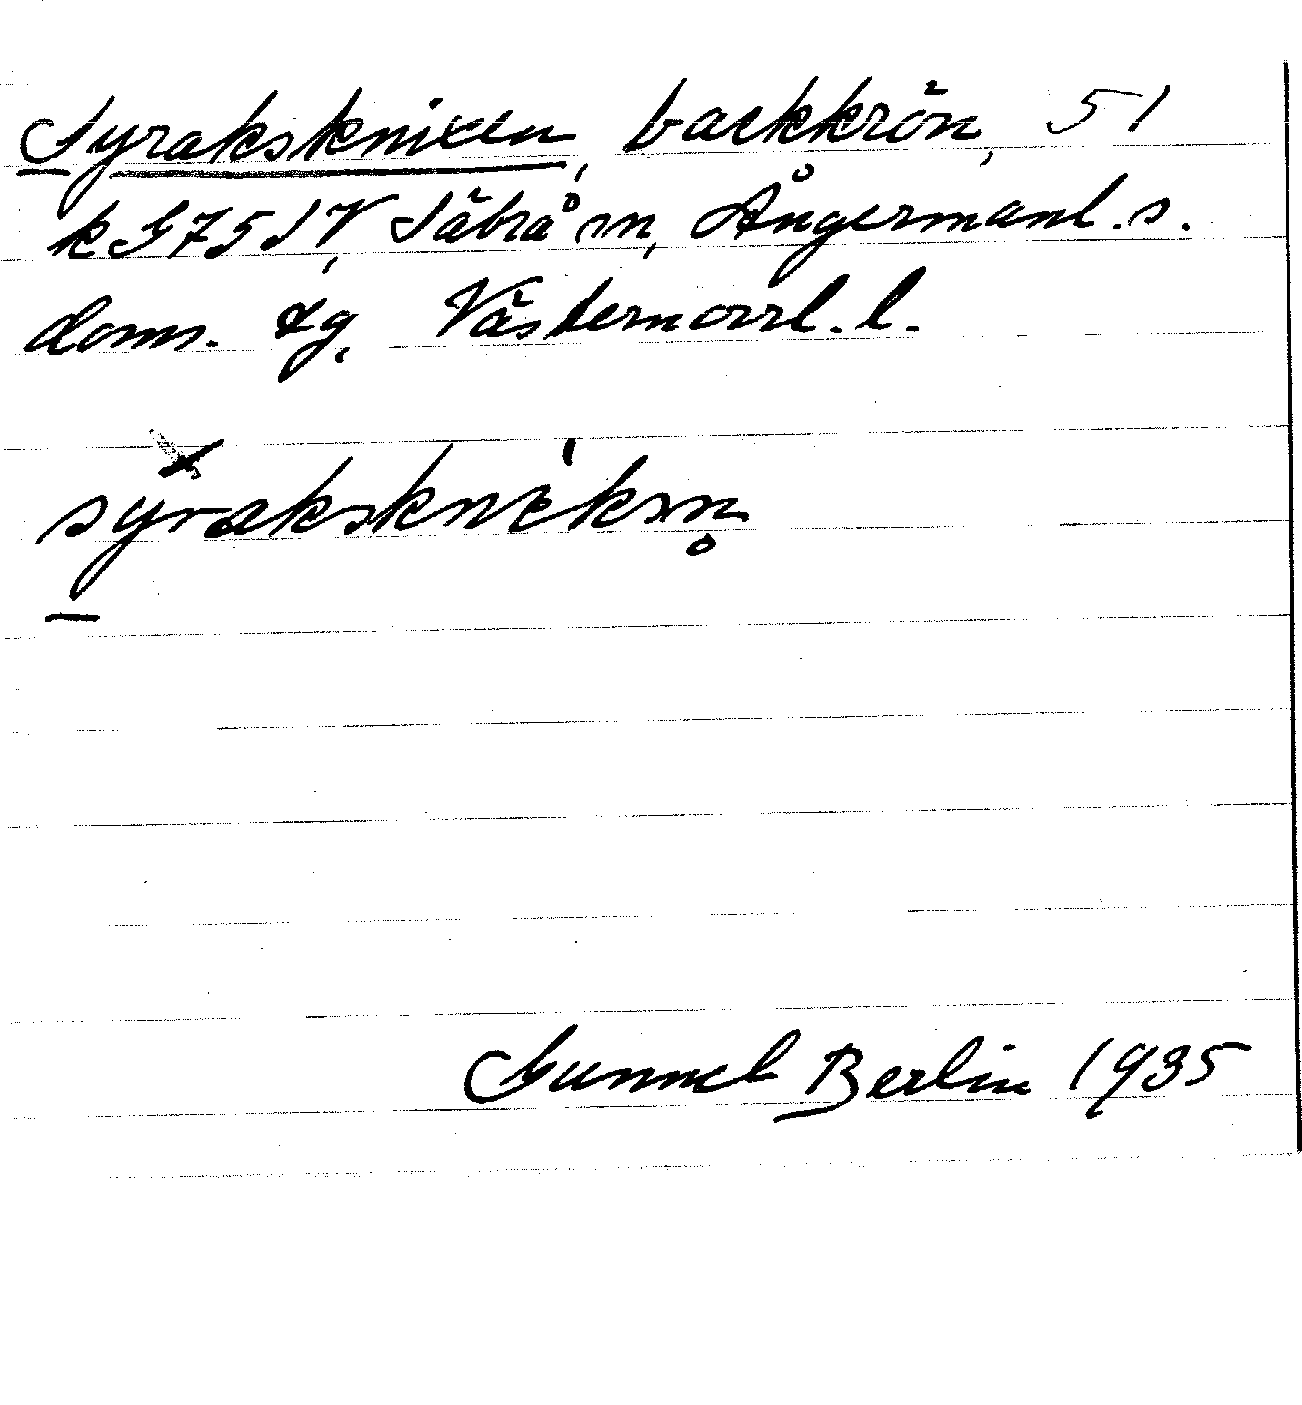 Syraksknixen, backkrön, 51
k G7551V, Säbrå sn, Ångermanl. s.
doms. lg, Västernorrl. l.
sýrakskniksn̥
Gunnel Berlin 1935